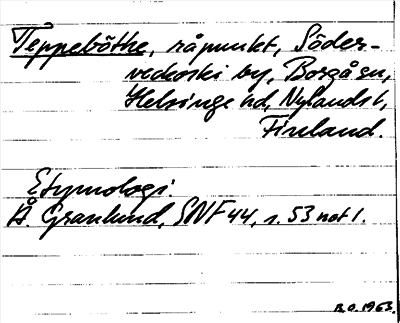 Teppebōthe, råpunkt, Söder-
vedkoski by, Borgå sn,
Helsinge hd, Nylands l,
Finland.
Etymologi.
Å. Granlund, SNF 44, s. 53 not 1.
R.O. 1963.